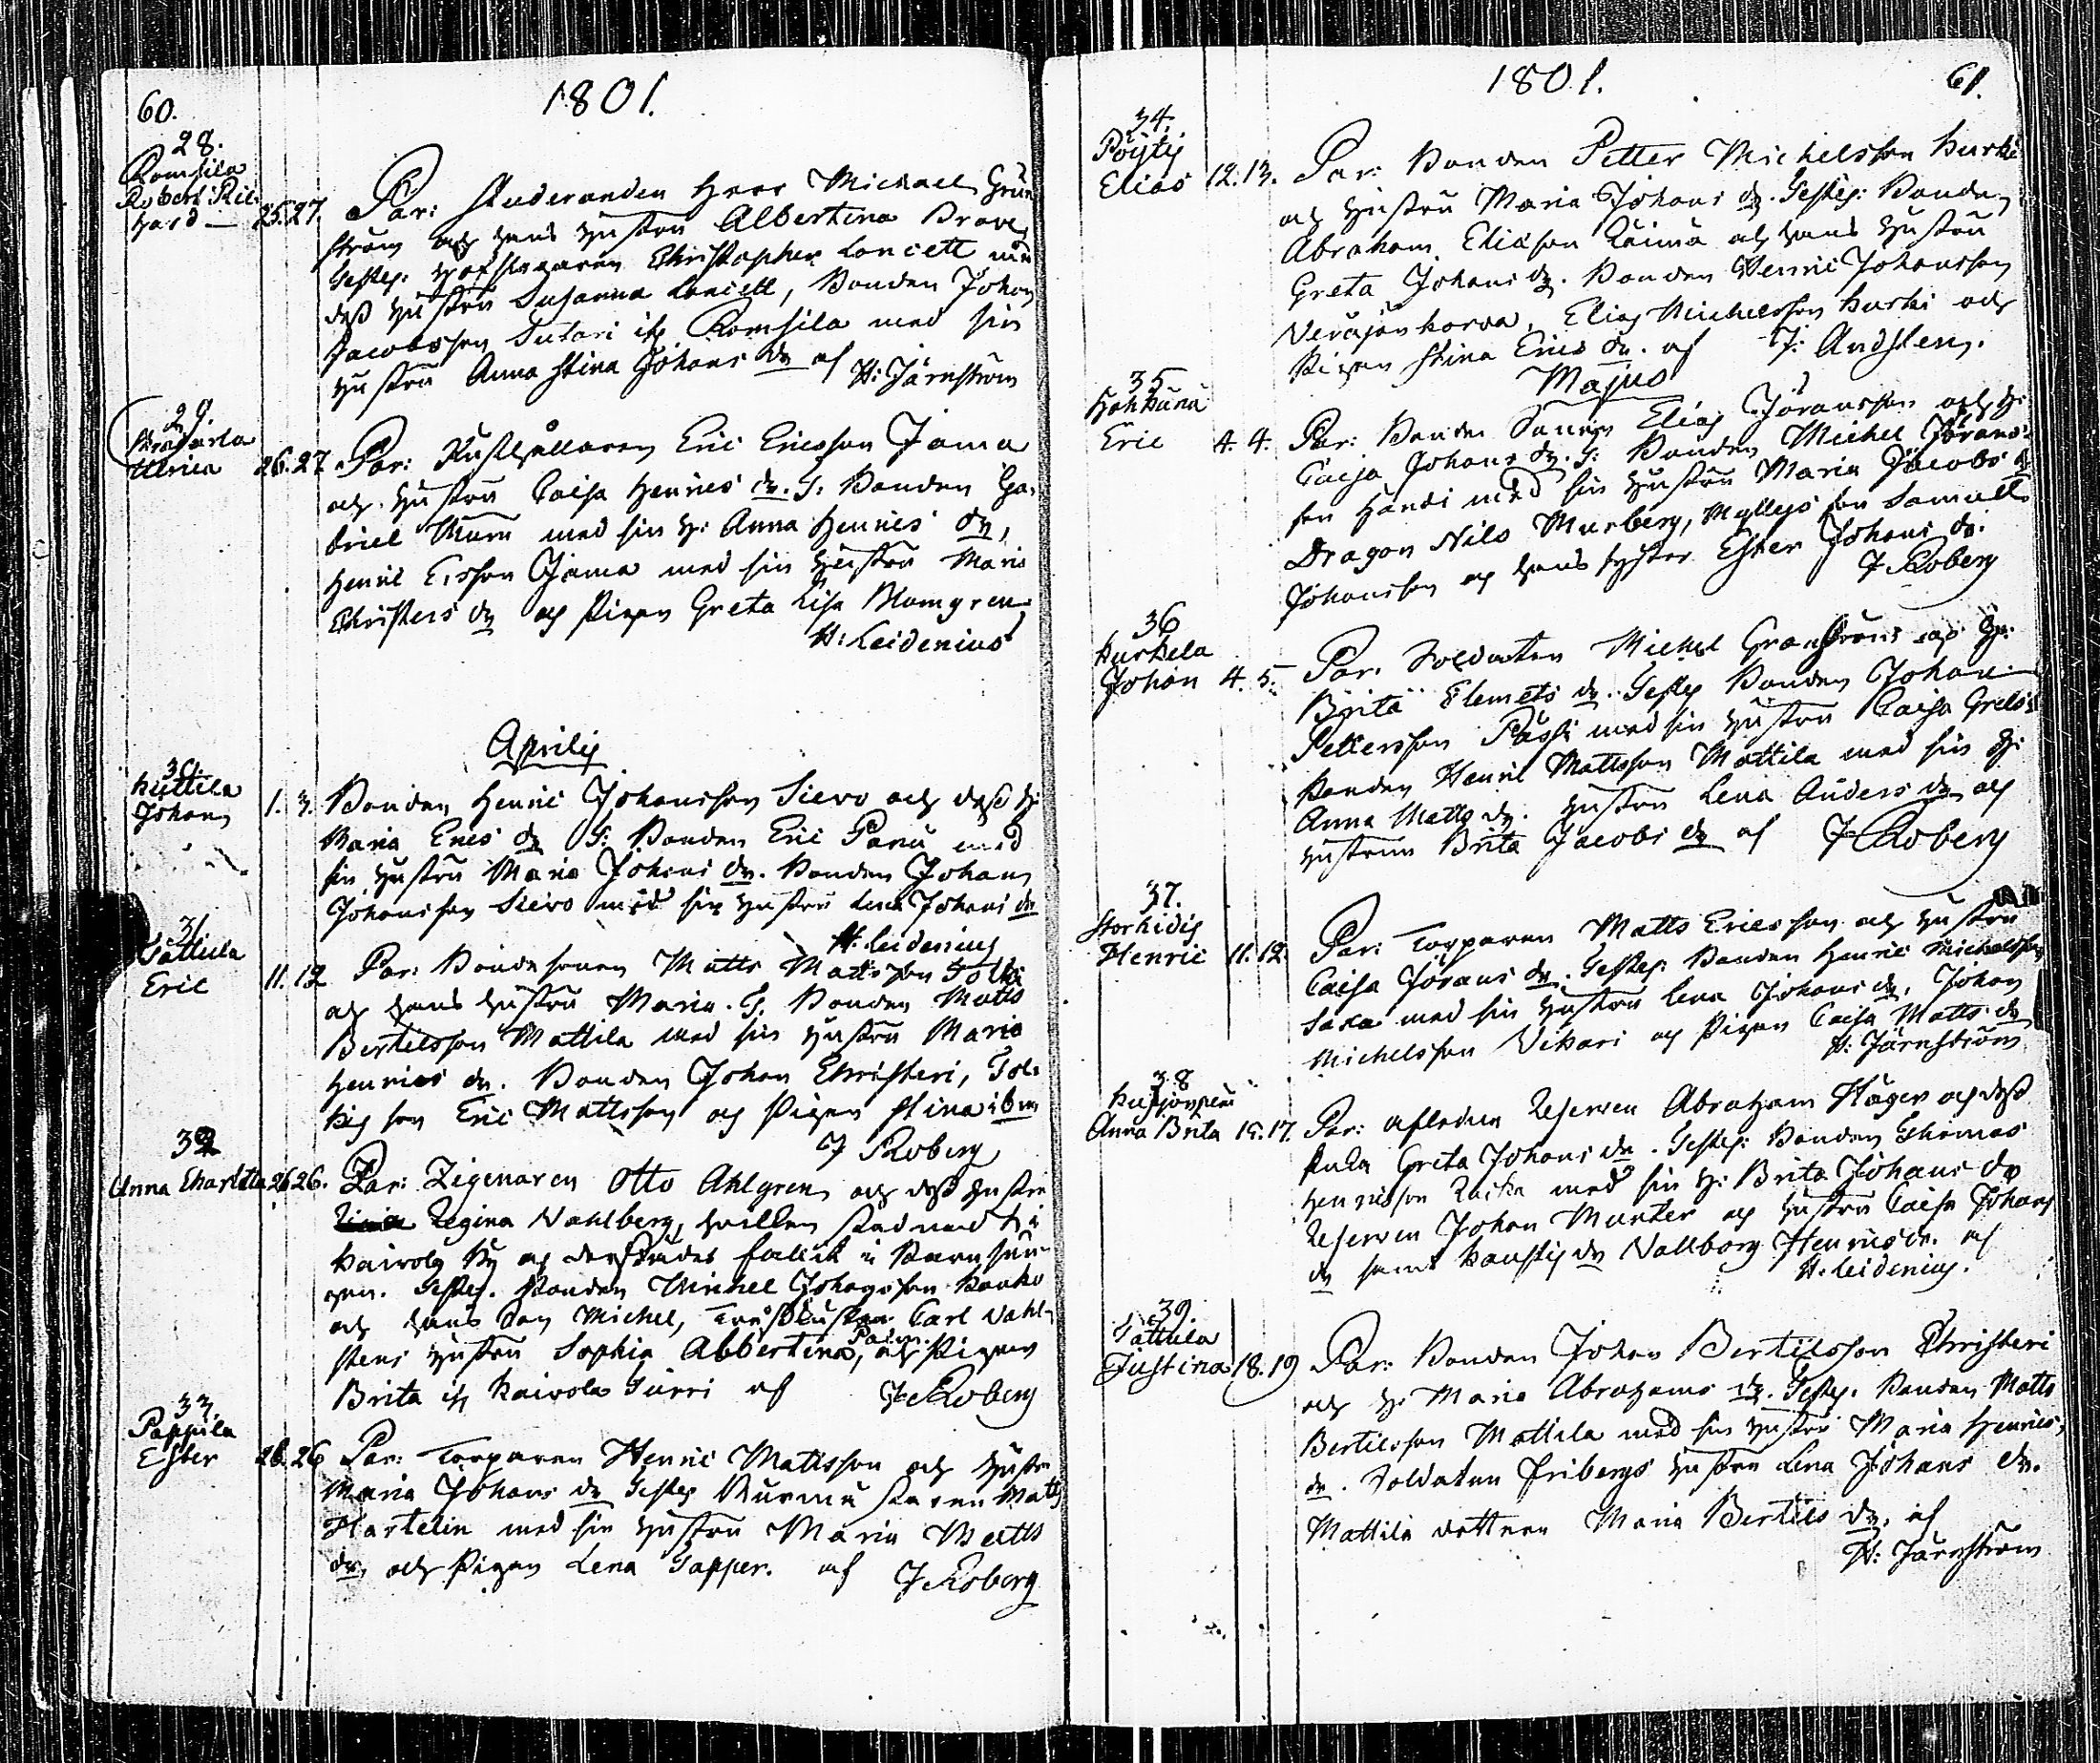 60.
1801.
28.
Romsila
Robert Ric-
hard — 25. 27.
Par: Studeranden Herr Michael Grön
ström och hans hustru Albertina Brave
Testes: Christopher Loncell
dess hustru Susanna Loncell, Bonden Johan
Jacobsson Sutari Romsila med sin
hustru Anna Stina Johans dr af H: Järnström
29.
Ulrica 26. 27.
Par: Rusthållaren Eric Ericsson Jama
och hustru Caisa Henrics dr. T: Bonden Ga-
briel med sin h: Anna Henrics dr,
Henric Ersson Jama med sin hustru Maria
Christers dr och Pigan Greta Lisa Blomgren
H: Leidenius
Aprilis
30.
Kuttila
Johan 1. 3.
Bonden Henric Johansson Sievo och dess h:
Maria Erics dr T: Bonden Eric Panu med
sin hustru Maria Johans dr. Bonden Johan
Johansson Sievo med sin hustru Lena Johans dr
H: Leidenius
31.
Tattula
Eric 11. 12
Par: Bondesonen Matts Mattsson Tolki
och hans hustru Maria. T. Bonden Matts
Bertilsson Mattila med sin hustru Maria
Henrics dr. Bonden Johan Christeri, Tol-
kis son Eric Mattsson och Pigan Stina ibm
J Roberg
32
Anna Charlotta 26 26.
Par: Zigenaren Otto Ahlgren och dess hustru
Regina Vahlberg, hvilken stadnad i
Kairola by och derstädes fallit i Barnsän-
gen. Testes. Bonden Michel Johansson Kauko
och hans Son Michel, Carl Vahl-
stens hustru Sophia Albertina, och Pigan
Brita if Kairola Turri af J Roberg
33.
Pappila
Ester 26. 26
Par: Torparen Henric Mattsson och hustru
Maria Johans dr Testes Matts
Hartelin med sin hustru Maria Matts
dr, och Pigan Lena Tapper. af J Roberg
1801.
61.
34.
Pöytis
Elias 12. 13.
Par: Bonden Petter Michelsson Kurki
och hustru Maria Johans dr. Testes: Bonden
Abraham Eliasson Räimä och hans hustru
Greta Johans dr. Bonden Henric Johansson
Veräjänkorva, Elias Michelsson Kurki och
Pigan Stina Erics dr. af J: Andsten.
Majus
35
Eric 4. 4.
Par: Bonde Sonen Elias Jöransson och h:
Caisa Johans dr. T: Bonden Michel Jörans-
son Handi med sin hustru Maria Jacobs dr
Dragon Nils Murberg, Myllys son Samuel
Johansson och hans syster Ester Johans dr.
J Roberg
36
Kurkela
Johan 4. 5.
Par: Soldaten Michel Granström och h:
Brita Clemets dr. Testes Bonden Johan
Pettersson Passi med sin hustru Caisa Grels
Bonden Henric Mattsson Mattila med sin h:
Anna Matts dr. hustru Lena Anders dr och
hustrun Brita Jacobs dr af J Roberg
37.
Storhidis
Henric 11. 12.
Par: Torparen Matts Ericsson och hustru
Caisa Jörans dr. Testes: Bonden Henric Michelsson
Saxa med sin hustru Lena Johans dr, Johan
Michelsson Vikari och Pigan Caisa Matts dr
H: Järnström
38
Anna Brita 15. 17.
Par: afledne Reserven Abraham Häger och dess
Enka Greta Johans dr. Testes: Bonden Thomas
Henricsson med sin h: Brita Johans dr
Reserven Johan Munter och hustru Caisa Johans
dr samt dr Vallborg Henrics dr. af
H: Leidenius.
39.
Tattula
Justina 18. 19
Par: Bonden Johan Bertilsson Christeri
och h: Maria Abrahams dr. Testes. Bonden Matts
Bertilsson Mattila med sin hustru Maria Henrics
dr. Soldaten Fribergs hustru Lena Johans dr.
Mattila dottren Maria Bertils dr, af
H: Järnström